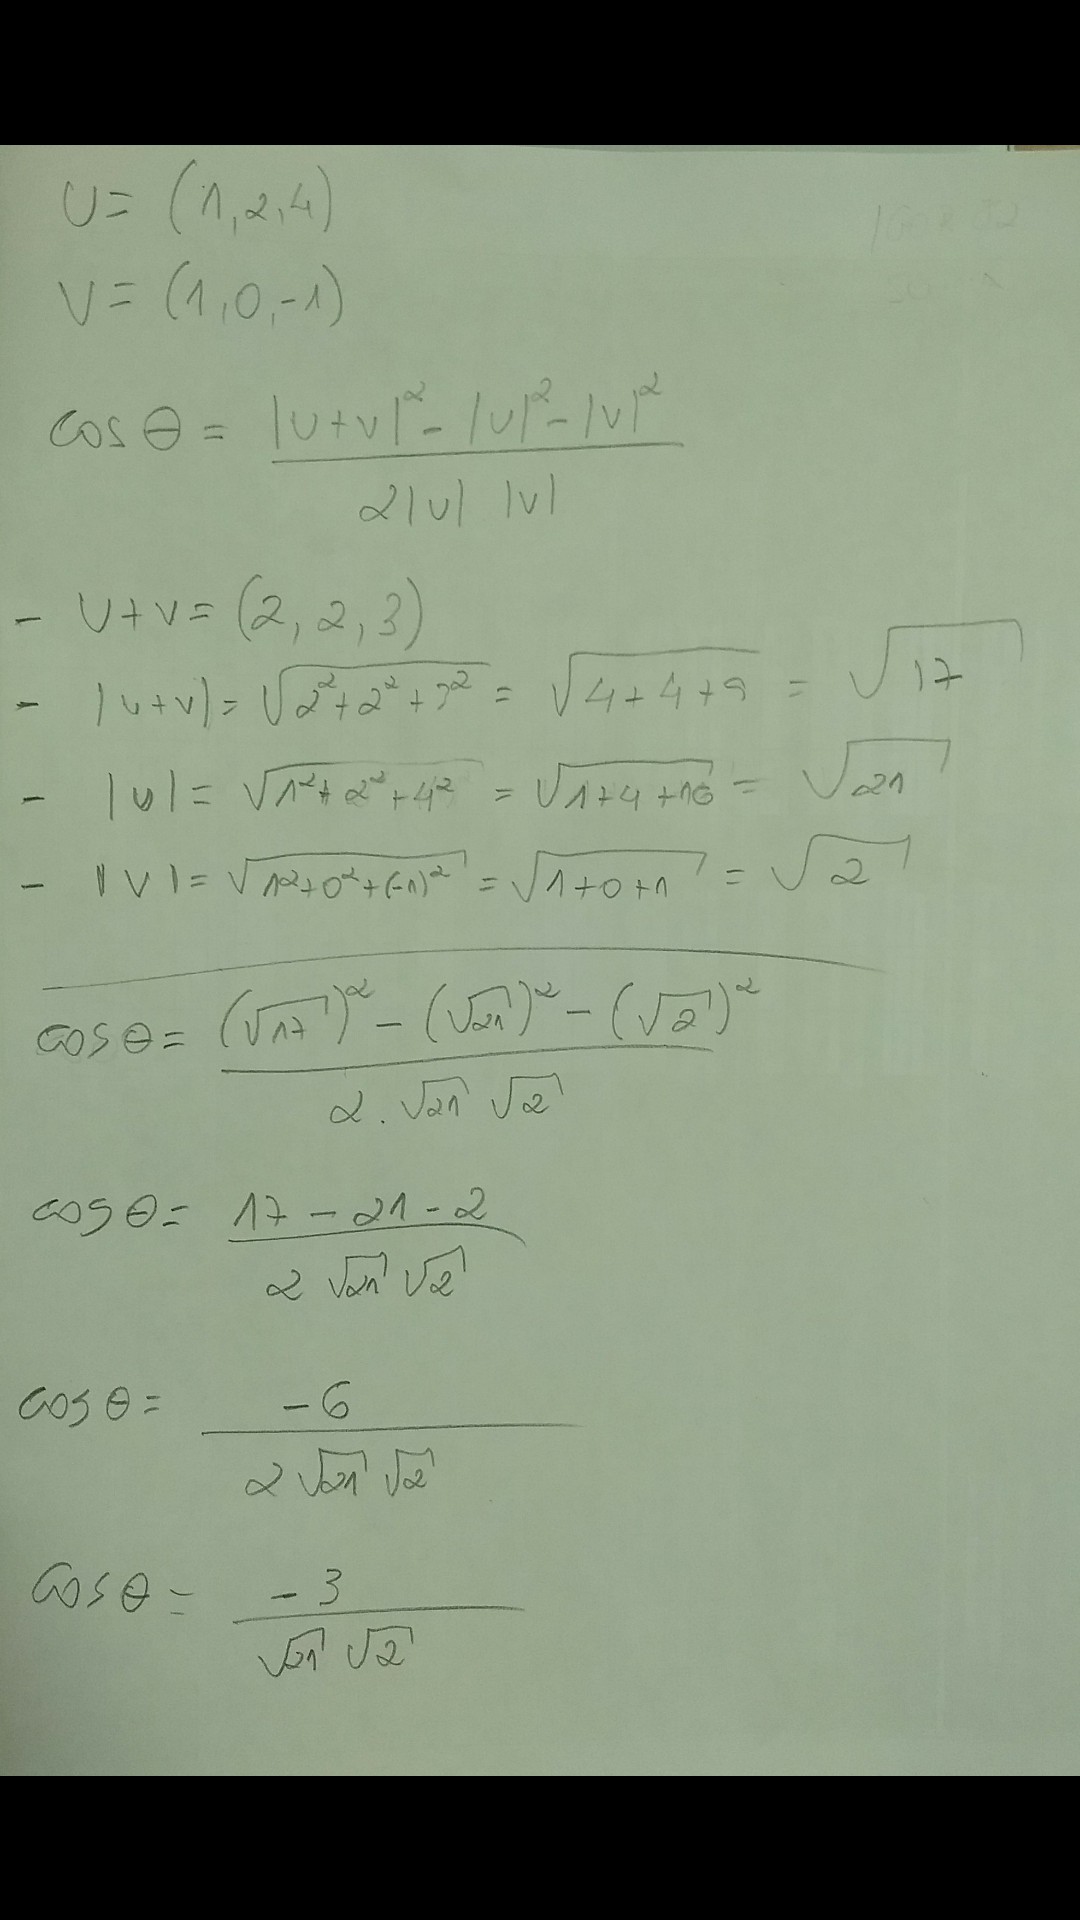 U = (1,2,4)
V = (1,0,-1)
cos θ = |U+V|² - |U|² - |V|² / 2|U| |V|
- U+V = (2,2,3)
- |U+V| = √(2²+2²+3²) = √(4+4+9) = √17
- |U| = √(1²+2²+4²) = √(1+4+16) = √21
- |V| = √(1²+0²+(-1)²) = √(1+0+1) = √2
cos θ = (√17)² - (√21)² - (√2)² / 2.√21 √2
cos θ = 17 - 21 - 2 / 2 √21 √2
cos θ = -6 / 2 √21 √2
cos θ = -3 / √21 √2